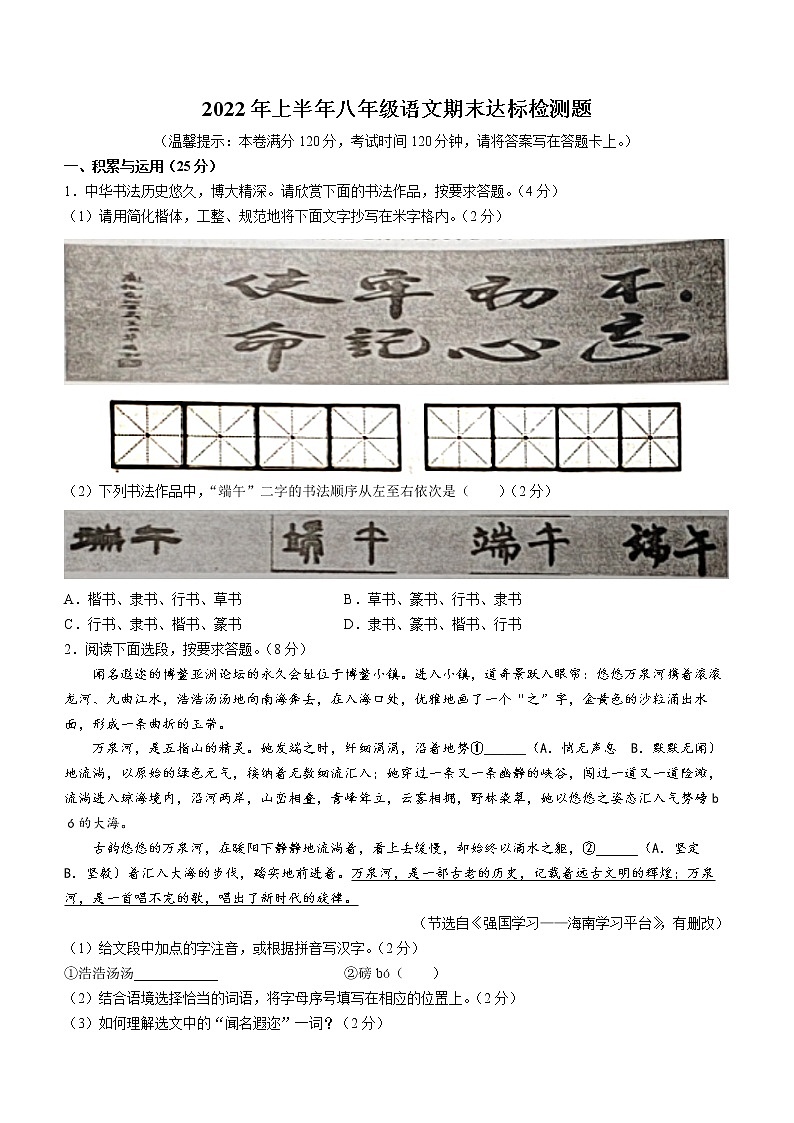 2022年上半年八年级语文期末达标检测题
（温馨提示：本卷满分120分，考试时间120分钟，请将答案写在答题卡上。）
一、积累与运用（25分）
1．中华书法历史悠久，博大精深。请欣赏下面的书法作品，按要求答题。（4分）
（1）请用简化楷体，工整、规范地将下面文字抄写在米字格内。（2分）
不忘
初心
牢記
使命
（2）下列书法作品中，“端午”二字的书法顺序从左至右依次是（　　）（2分）
端午 端午 端午 端午
A．楷书、隶书、行书、草书 B．草书、篆书、行书、隶书
C．行书、隶书、楷书、篆书 D．隶书、篆书、楷书、行书
2．阅读下面选段，按要求答题。（8分）
闻名遐迩的博鳌亚洲论坛的永久会址位于博鳌小镇。进入小镇，道奇景跃入眼帘：悠悠万泉河携着滚滚
龙河、九曲江水，浩浩汤汤地向南海奔去，在入海口处，优雅地画了一个“之”字，金黄色的沙粒涌出水
面，形成一条曲折的玉带。
万泉河，是五指山的精灵。她发端之时，纤细涓涓，沿着地势①______（A．悄无声息　B．默默无闻）
地流淌，以原始的绿色元气，接纳着无数细流汇入；她穿过一条又一条幽静的峡谷，闯过一道又一道险滩，
流淌进入琼海境内，沿河两岸，山峦相叠，青峰耸立，云雾相拥，野林染翠，她以悠悠之姿态汇入气势磅b
ó的大海。
古韵悠悠的万泉河，在暖阳下静静地流淌着，看上去缓慢，却始终以滴水之躯，②______（A．坚定
B．坚毅）着汇入大海的步伐，踏实地前进着。万泉河，是一部古老的历史，记载着远古文明的辉煌；万泉
河，是一首唱不完的歌，唱出了新时代的旋律。
（节选自《强国学习——海南学习平台》，有删改）
（1）给文段中加点的字注音，或根据拼音写汉字。（2分）
①浩浩汤汤____________ ②磅bó（　　）
（2）结合语境选择恰当的词语，将字母序号填写在相应的位置上。（2分）
（3）如何理解选文中的“闻名遐迩”一词？（2分）